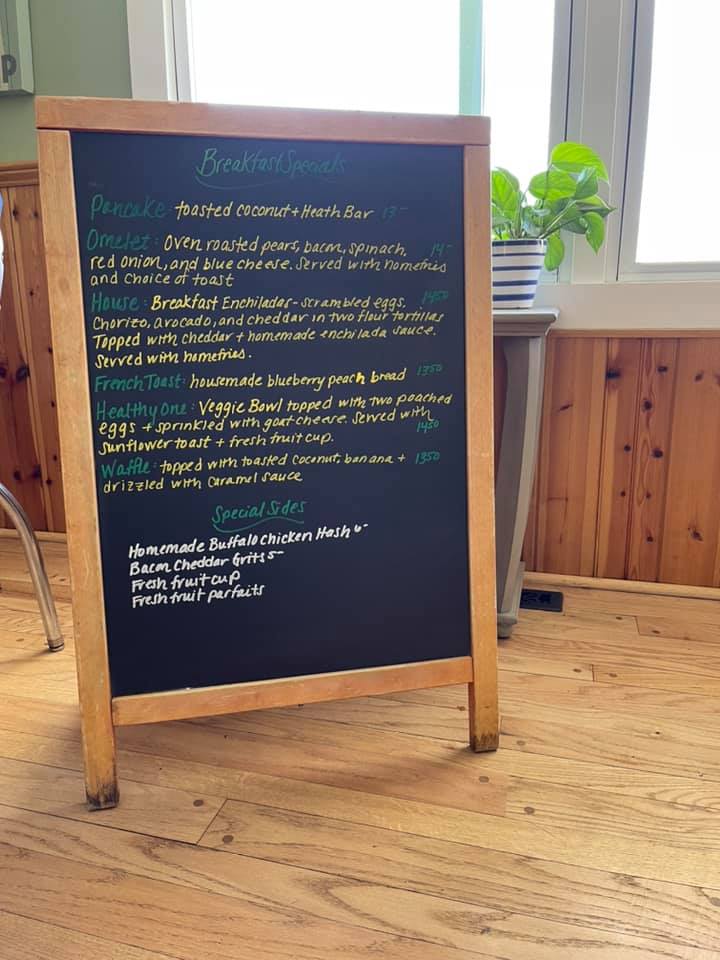 P
Breakfast Specials
Pancake: toasted coconut + Heath Bar 13-
Omelet: Oven roasted pears, bacon, spinach, 14-
red onion, and blue cheese. Served with homefries
and choice of toast
House: Breakfast Enchiladas - scrambled eggs, 1450
Chorizo, avocado, and cheddar in two flour tortillas
Topped with cheddar + homemade enchilada sauce.
Served with homefries.
French Toast: housemade blueberry peach bread 1350
Healthy One: Veggie Bowl topped with two poached
eggs + sprinkled with goat cheese. Served with
sunflower toast + fresh fruit cup. 1450
Waffle: topped with toasted coconut, banana + 1350
drizzled with caramel sauce
Special Sides
Homemade Buffalo Chicken Hash 6-
Bacon Cheddar Grits 5-
Fresh fruit cup
Fresh fruit parfaits